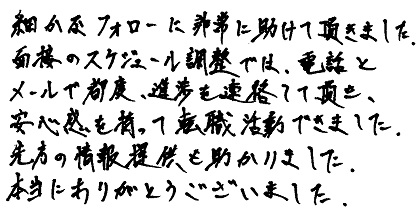 細かなフォローに非常に助けて頂きました。
面接のスケジュール調整では、電話と
メールで都度、進歩を連絡して頂き、
安心感を持って転職活動できました。
先方の情報提供も助かりました。
本当にありがとうございました。